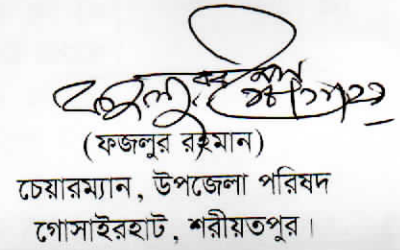 (ফজলুর রহমান)
চেয়ারম্যান, উপজেলা পরিষদ
গোসাইরহাট, শরীয়তপুর।